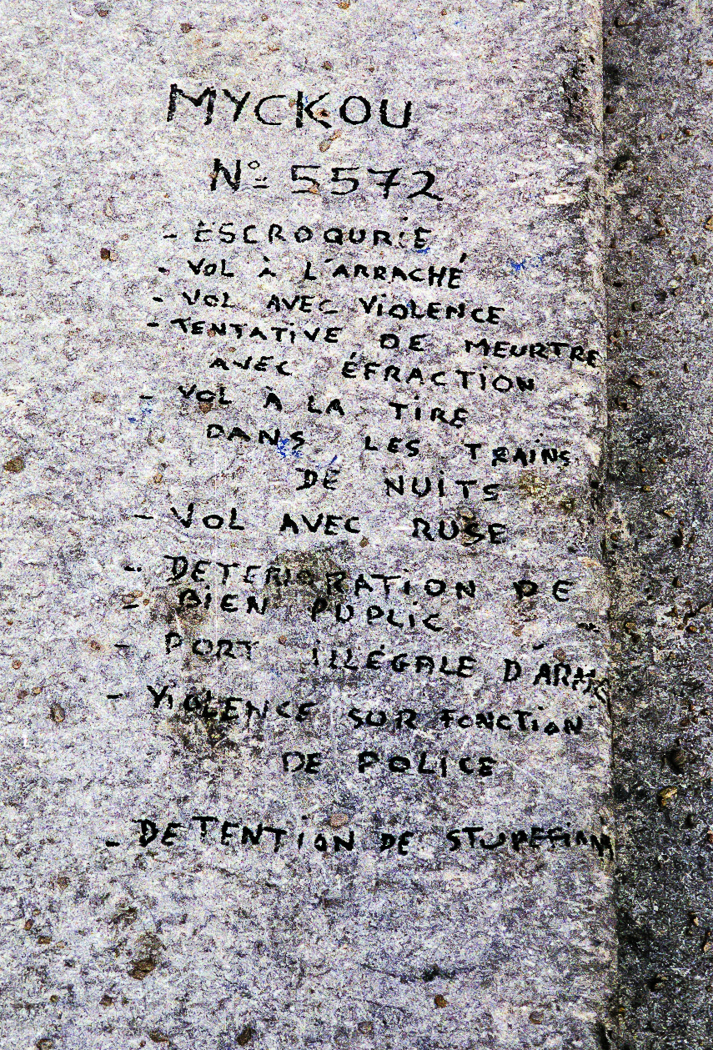 MYCKOU
N° 5572
- ESCROQURIE
- VOL À L'ARRACHÉ
- VOL AVEC ViOLENCE
- TENTATiVE DE MEURTRE
AVEC ÉFRACTiON
- VOL À LA TiRE
DANS LES TRAiNS
DE NUiTS
- VOL AVEC RUSE
- DETERiORATiON DE
- BiEN PUPLiC
- PORT iLLÉGALE D'ARME
- ViOLENCE SUR FONCTiON
DE POLiCE
- DETENTiON DE STUPEFiANT